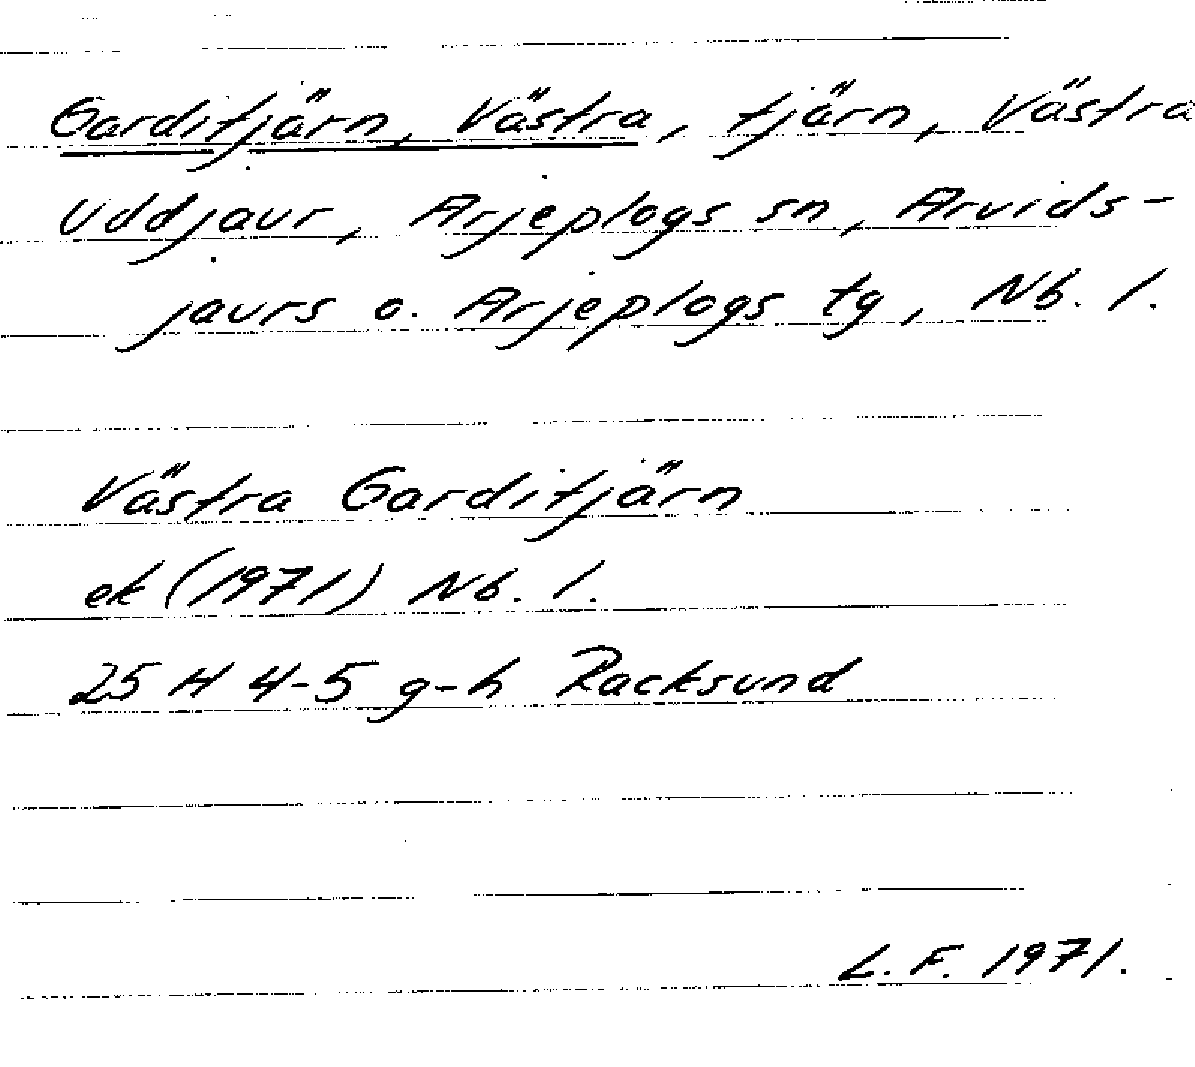 Garditjärn, Västra, tjärn, Västra
Uddjaur, Arjeplogs sn, Arvids-
jaurs o. Arjeplogs tg, Nb. l.
Västra Garditjärn
ek (1971) Nb. l.
25 H 4-5 g-h Racksund
L. F. 1971.